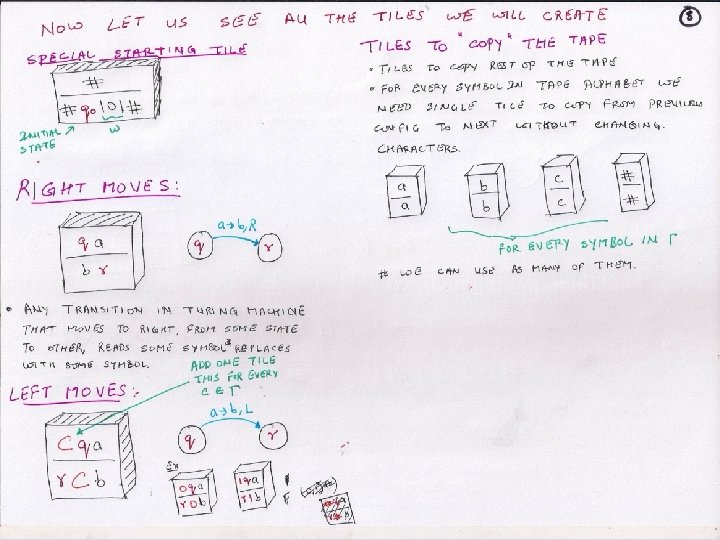 NOW LET US SEE All THE TILES WE WILL CREATE
8
SPECIAL STARTING TILE
#
#q₀101#
INITIAL STATE
w
RIGHT MOVES:
qa
br
a→b,R
q
r
• ANY TRANSITION IN TURING MACHINE
THAT MOVES TO RIGHT, FROM SOME STATE
TO OTHER, READS SOME SYMBOL & REPLACES
WITH SOME SYMBOL.
ADD ONE TILE
THIS FOR EVERY
C ∈ Γ
LEFT MOVES:
Cqa
rCb
a→b,L
q
r
Ex
0qa
r0b
1qa
r1b
TILES TO "COPY" THE TAPE
• TILES TO COPY REST OF THE TAPE
• FOR EVERY SYMBOL IN TAPE ALPHABET WE
NEED SINGLE TILE TO COPY FROM PREVIOUS
CONFIG TO NEXT WITHOUT CHANGING.
CHARACTERS.
a
a
b
b
c
c
#
#
FOR EVERY SYMBOL IN Γ
# WE CAN USE AS MANY OF THEM.